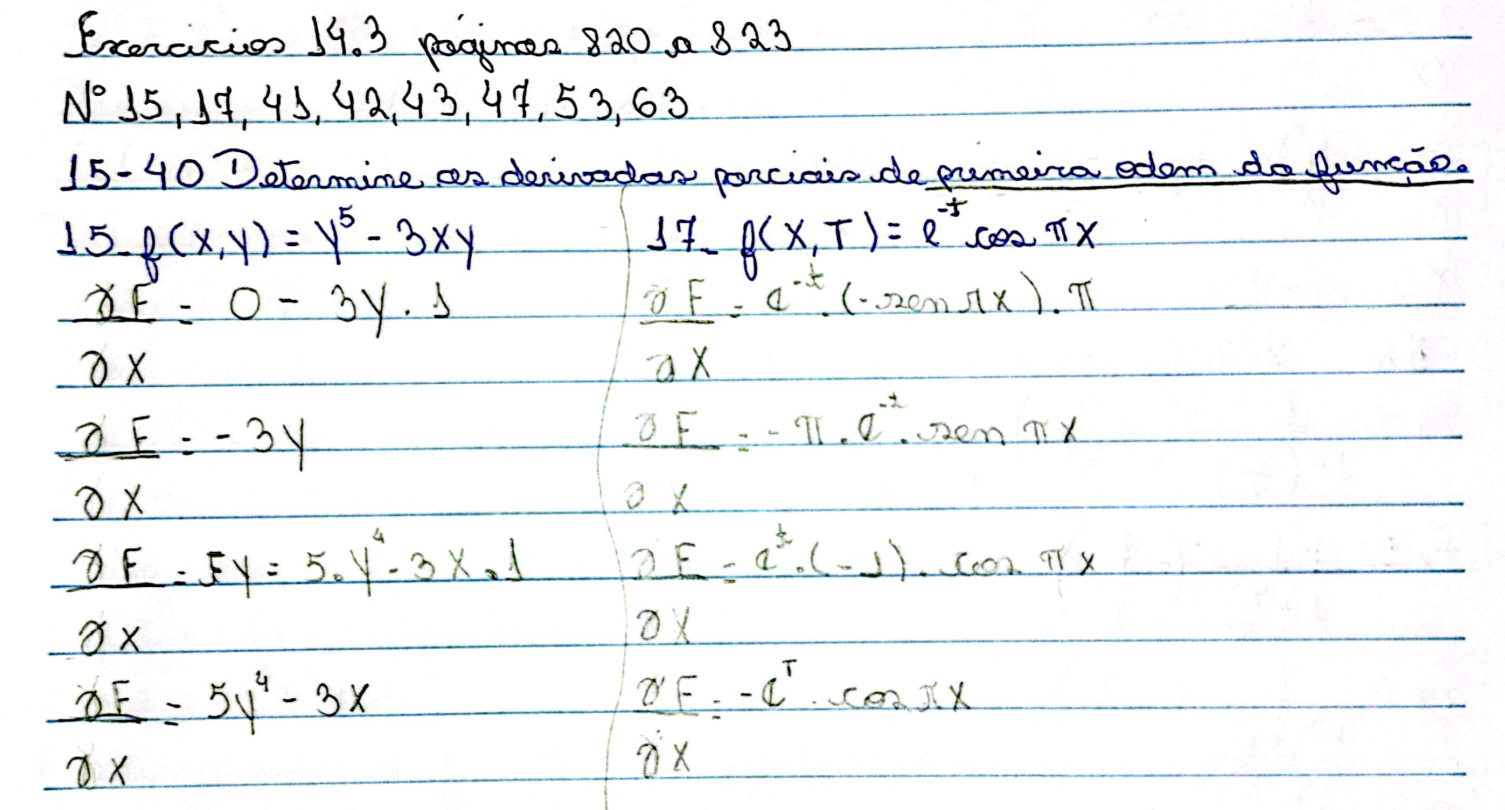 Exercícios 14.3 páginas 820 a 823
Nº 15, 17, 41, 42, 43, 47, 53, 63
15-40 Determine as derivadas parciais de primeira odem da função.
15- f(x,y) = y⁵ - 3xy
∂F = 0 - 3y . 1
∂x
∂F = -3y
∂x
∂F = Fy = 5.y⁴ - 3x.1
∂x
∂F = 5y⁴ - 3x
∂x
17- f(x,T) = e⁻ᵗ cos πx
∂F = e⁻ᵗ . (-sen πx) . π
∂x
∂F = -π . e⁻ᵗ . sen πx
∂x
∂F = eᵗ . (-1) . cos πx
∂x
∂F = -eᵀ . cos πx
∂x